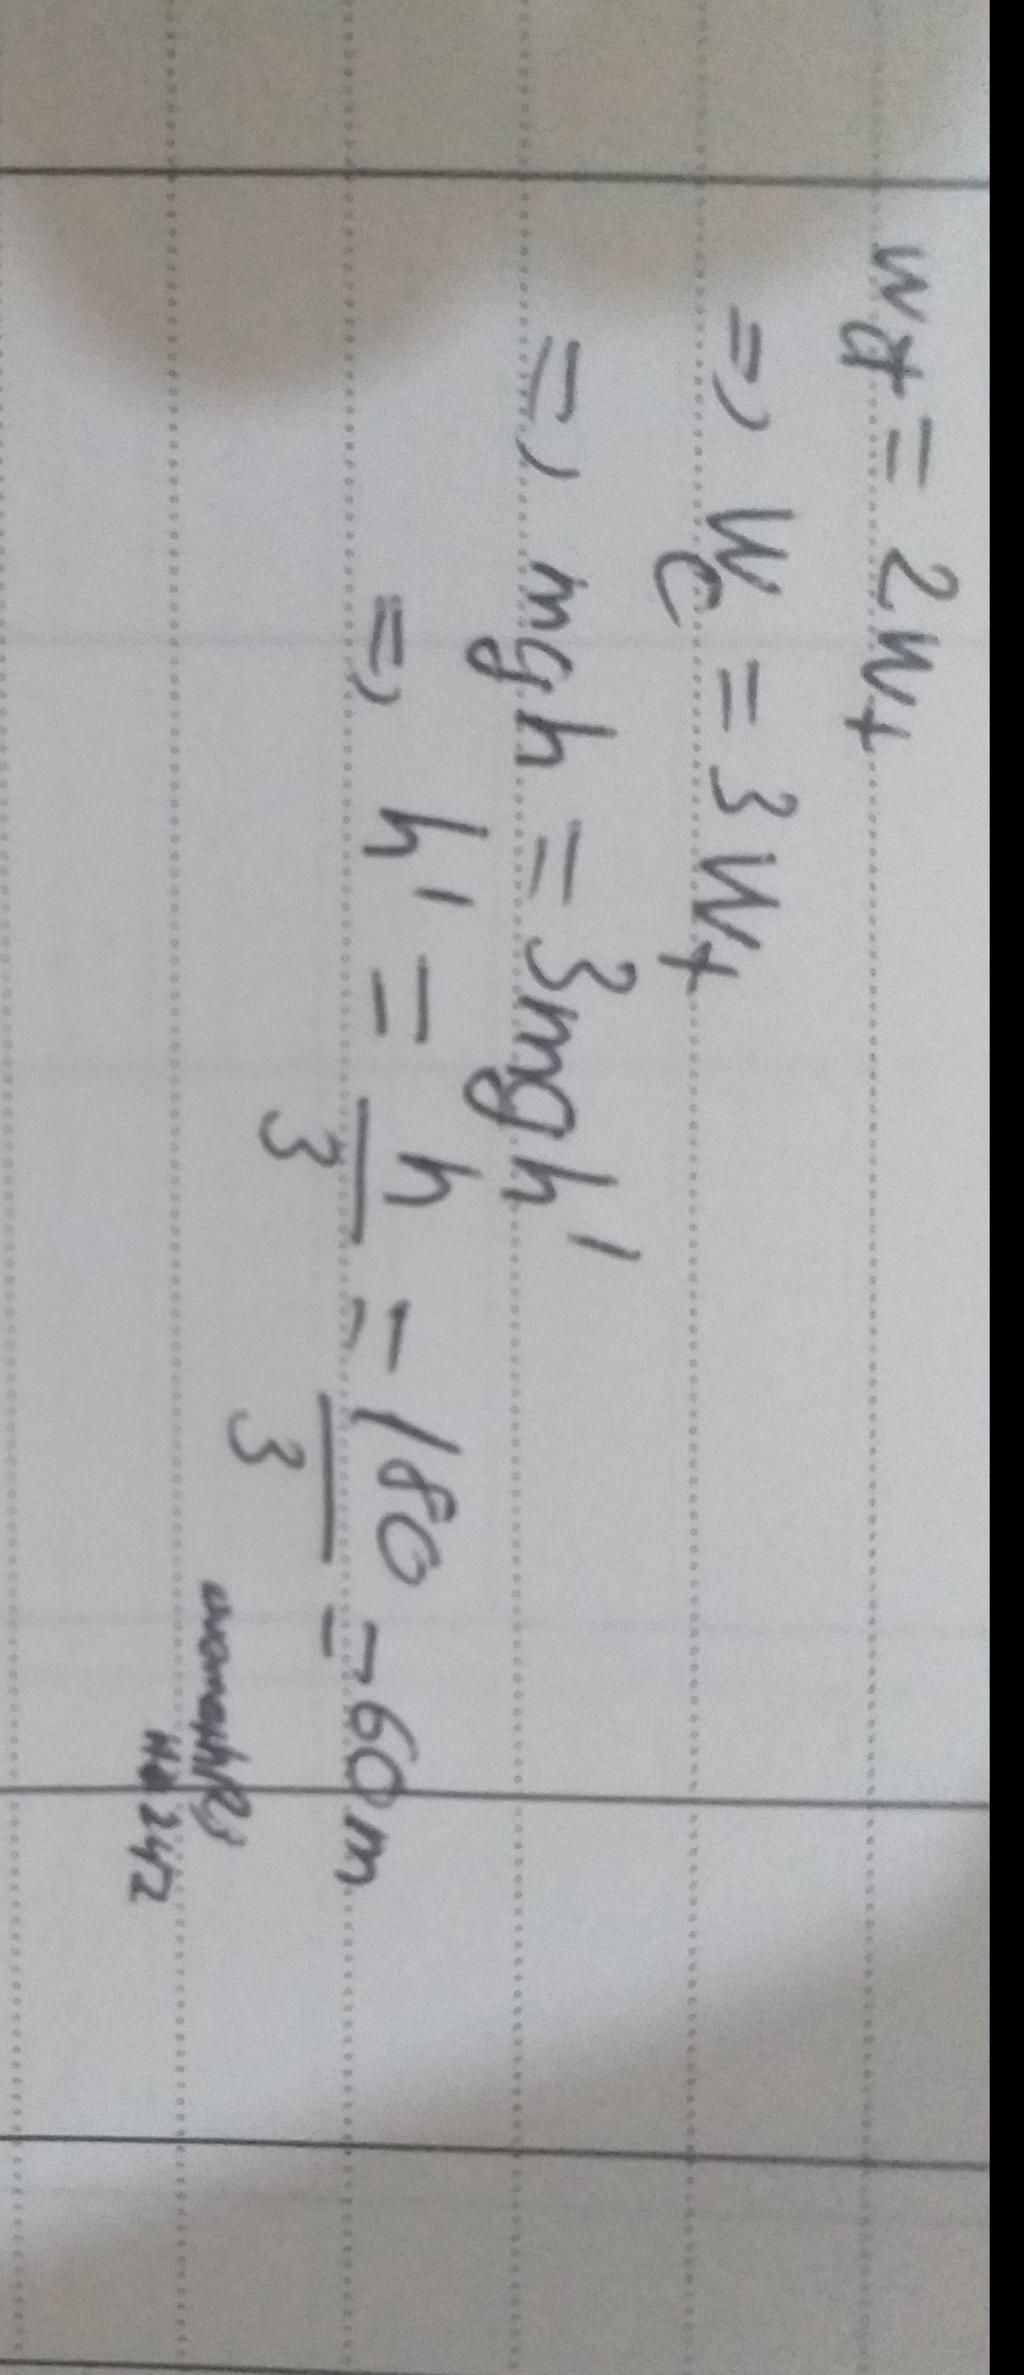 Wđ = 2Wt
=> Wc = 3Wt
=> mgh = 3mgh'
=> h' = h/3 = 180/3 = 60m